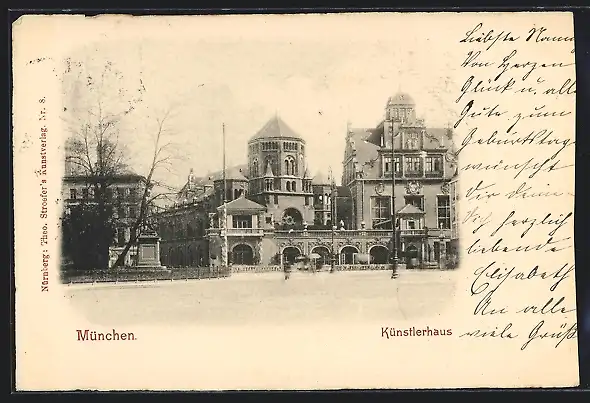 Nürnberg: Theo. Stroefer's Kunstverlag. Nr. 8.
München.
Künstlerhaus
Liebste Nanny
Von Herzen
Glück u. alles
Gute zum
Geburtstag
wünscht
Dir deine
Dich herzlich
liebende
Elisabeth
An alle
viele Grüße